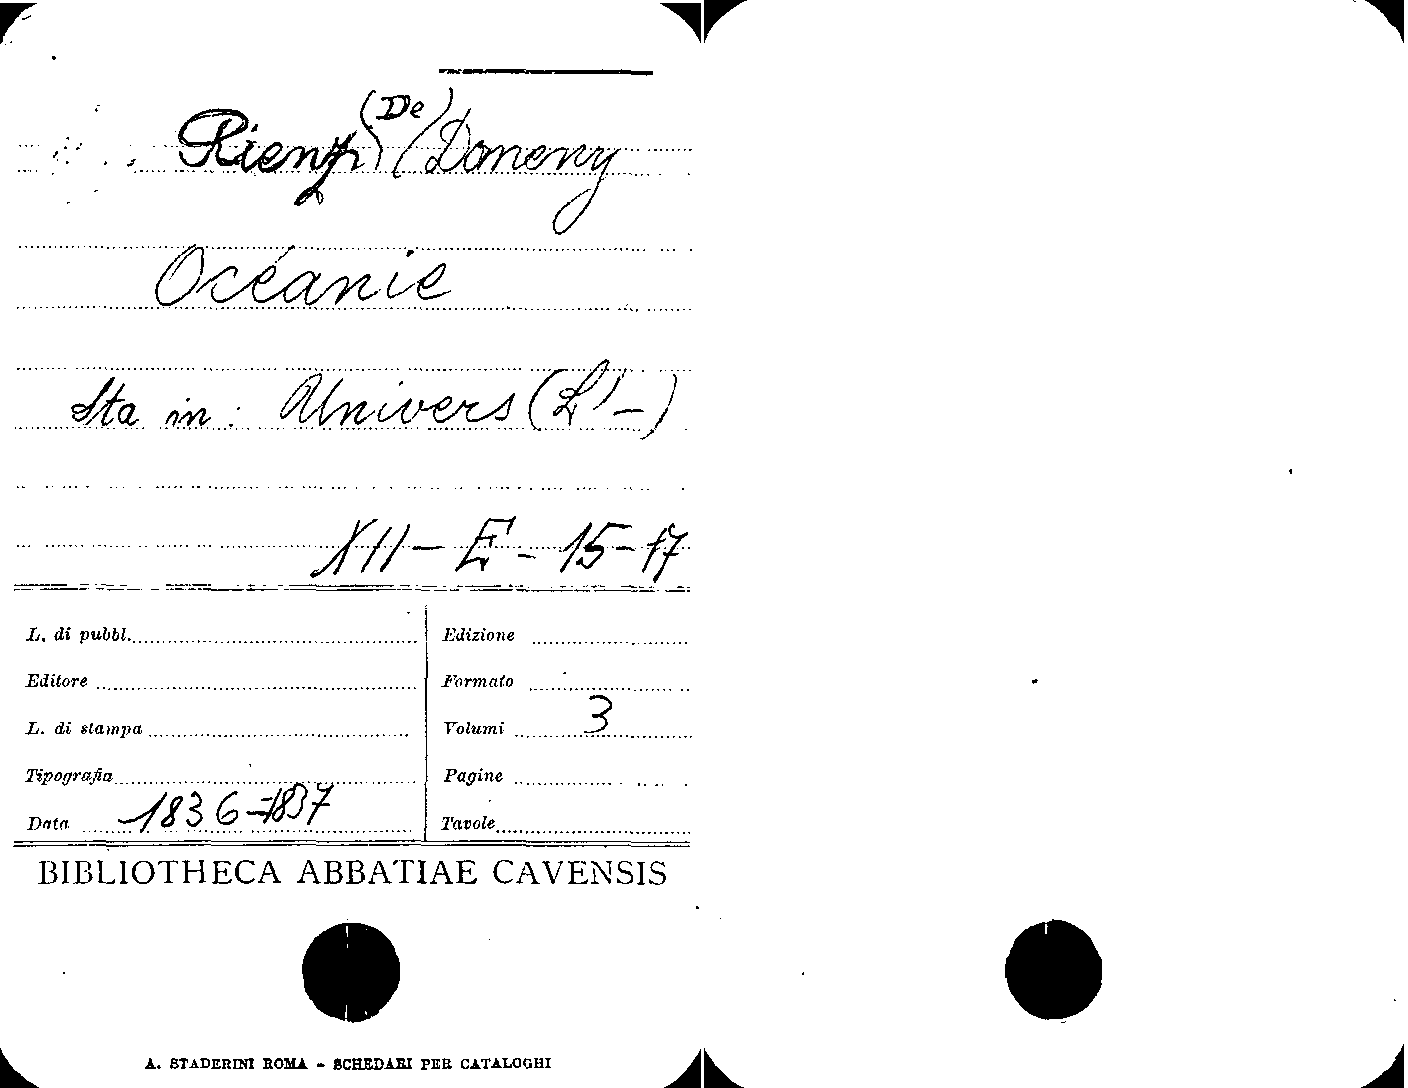 Rienzi (De) (Domeny
Océanie
Sta in: Univers (L'-)
XII - E - 15-17
L. di pubbl.
Editore
L. di stampa
Tipografia
Data 1836=1837
Edizione
Formato
Volumi 3
Pagine
Tavole
BIBLIOTHECA ABBATIAE CAVENSIS
A. STADERINI ROMA - SCHEDARI PER CATALOGHI